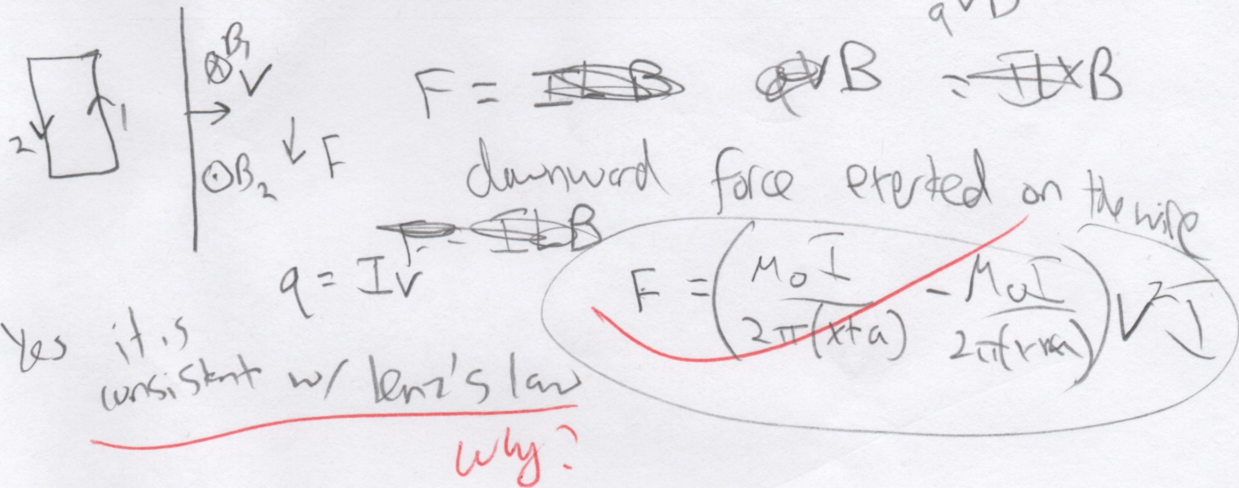 qVB
⊗B₁
V
F = qVB = IL×B
1
2
↓ F
⊙B₂
downward force exerted on the wire
F = ILB
q = IV
F = (μ₀I/2π(x+a) - μ₀I/2π(x+2a)) V²I
Yes it is
consistent w/ lenz's law
Why?